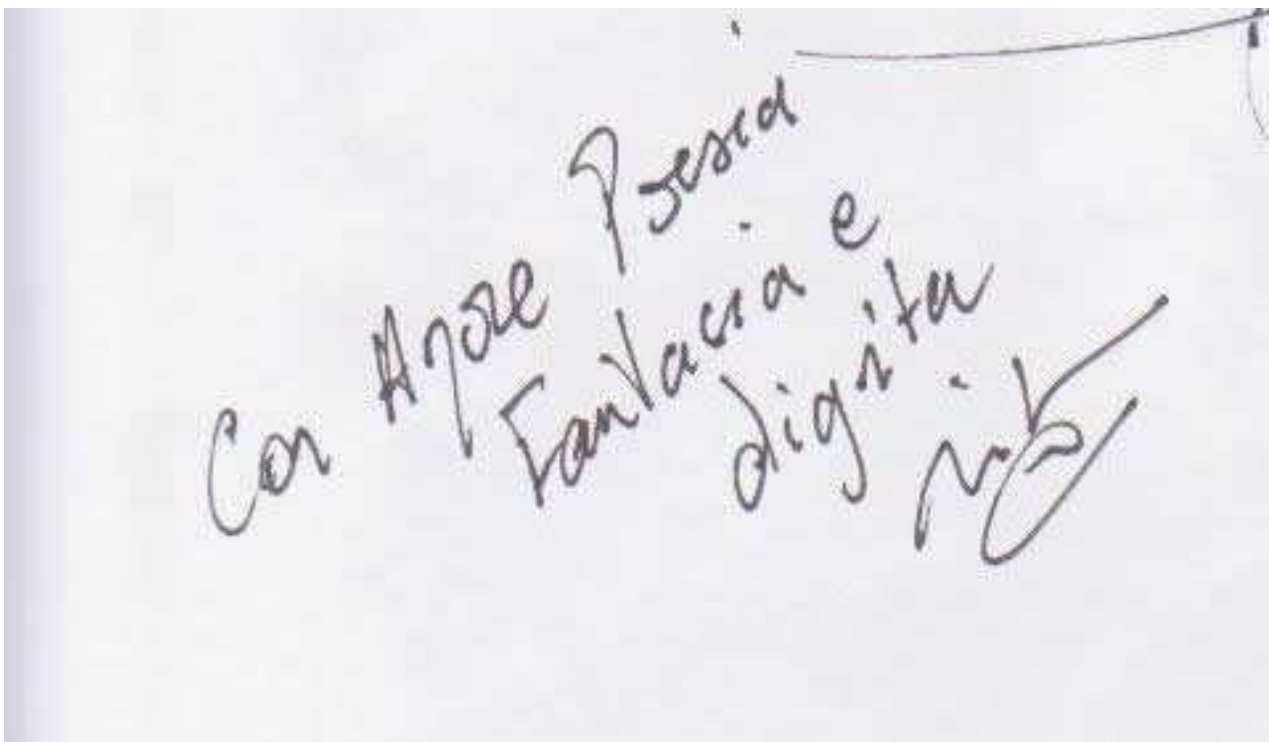 Con Amore Poesia
Fantasia e
dignita